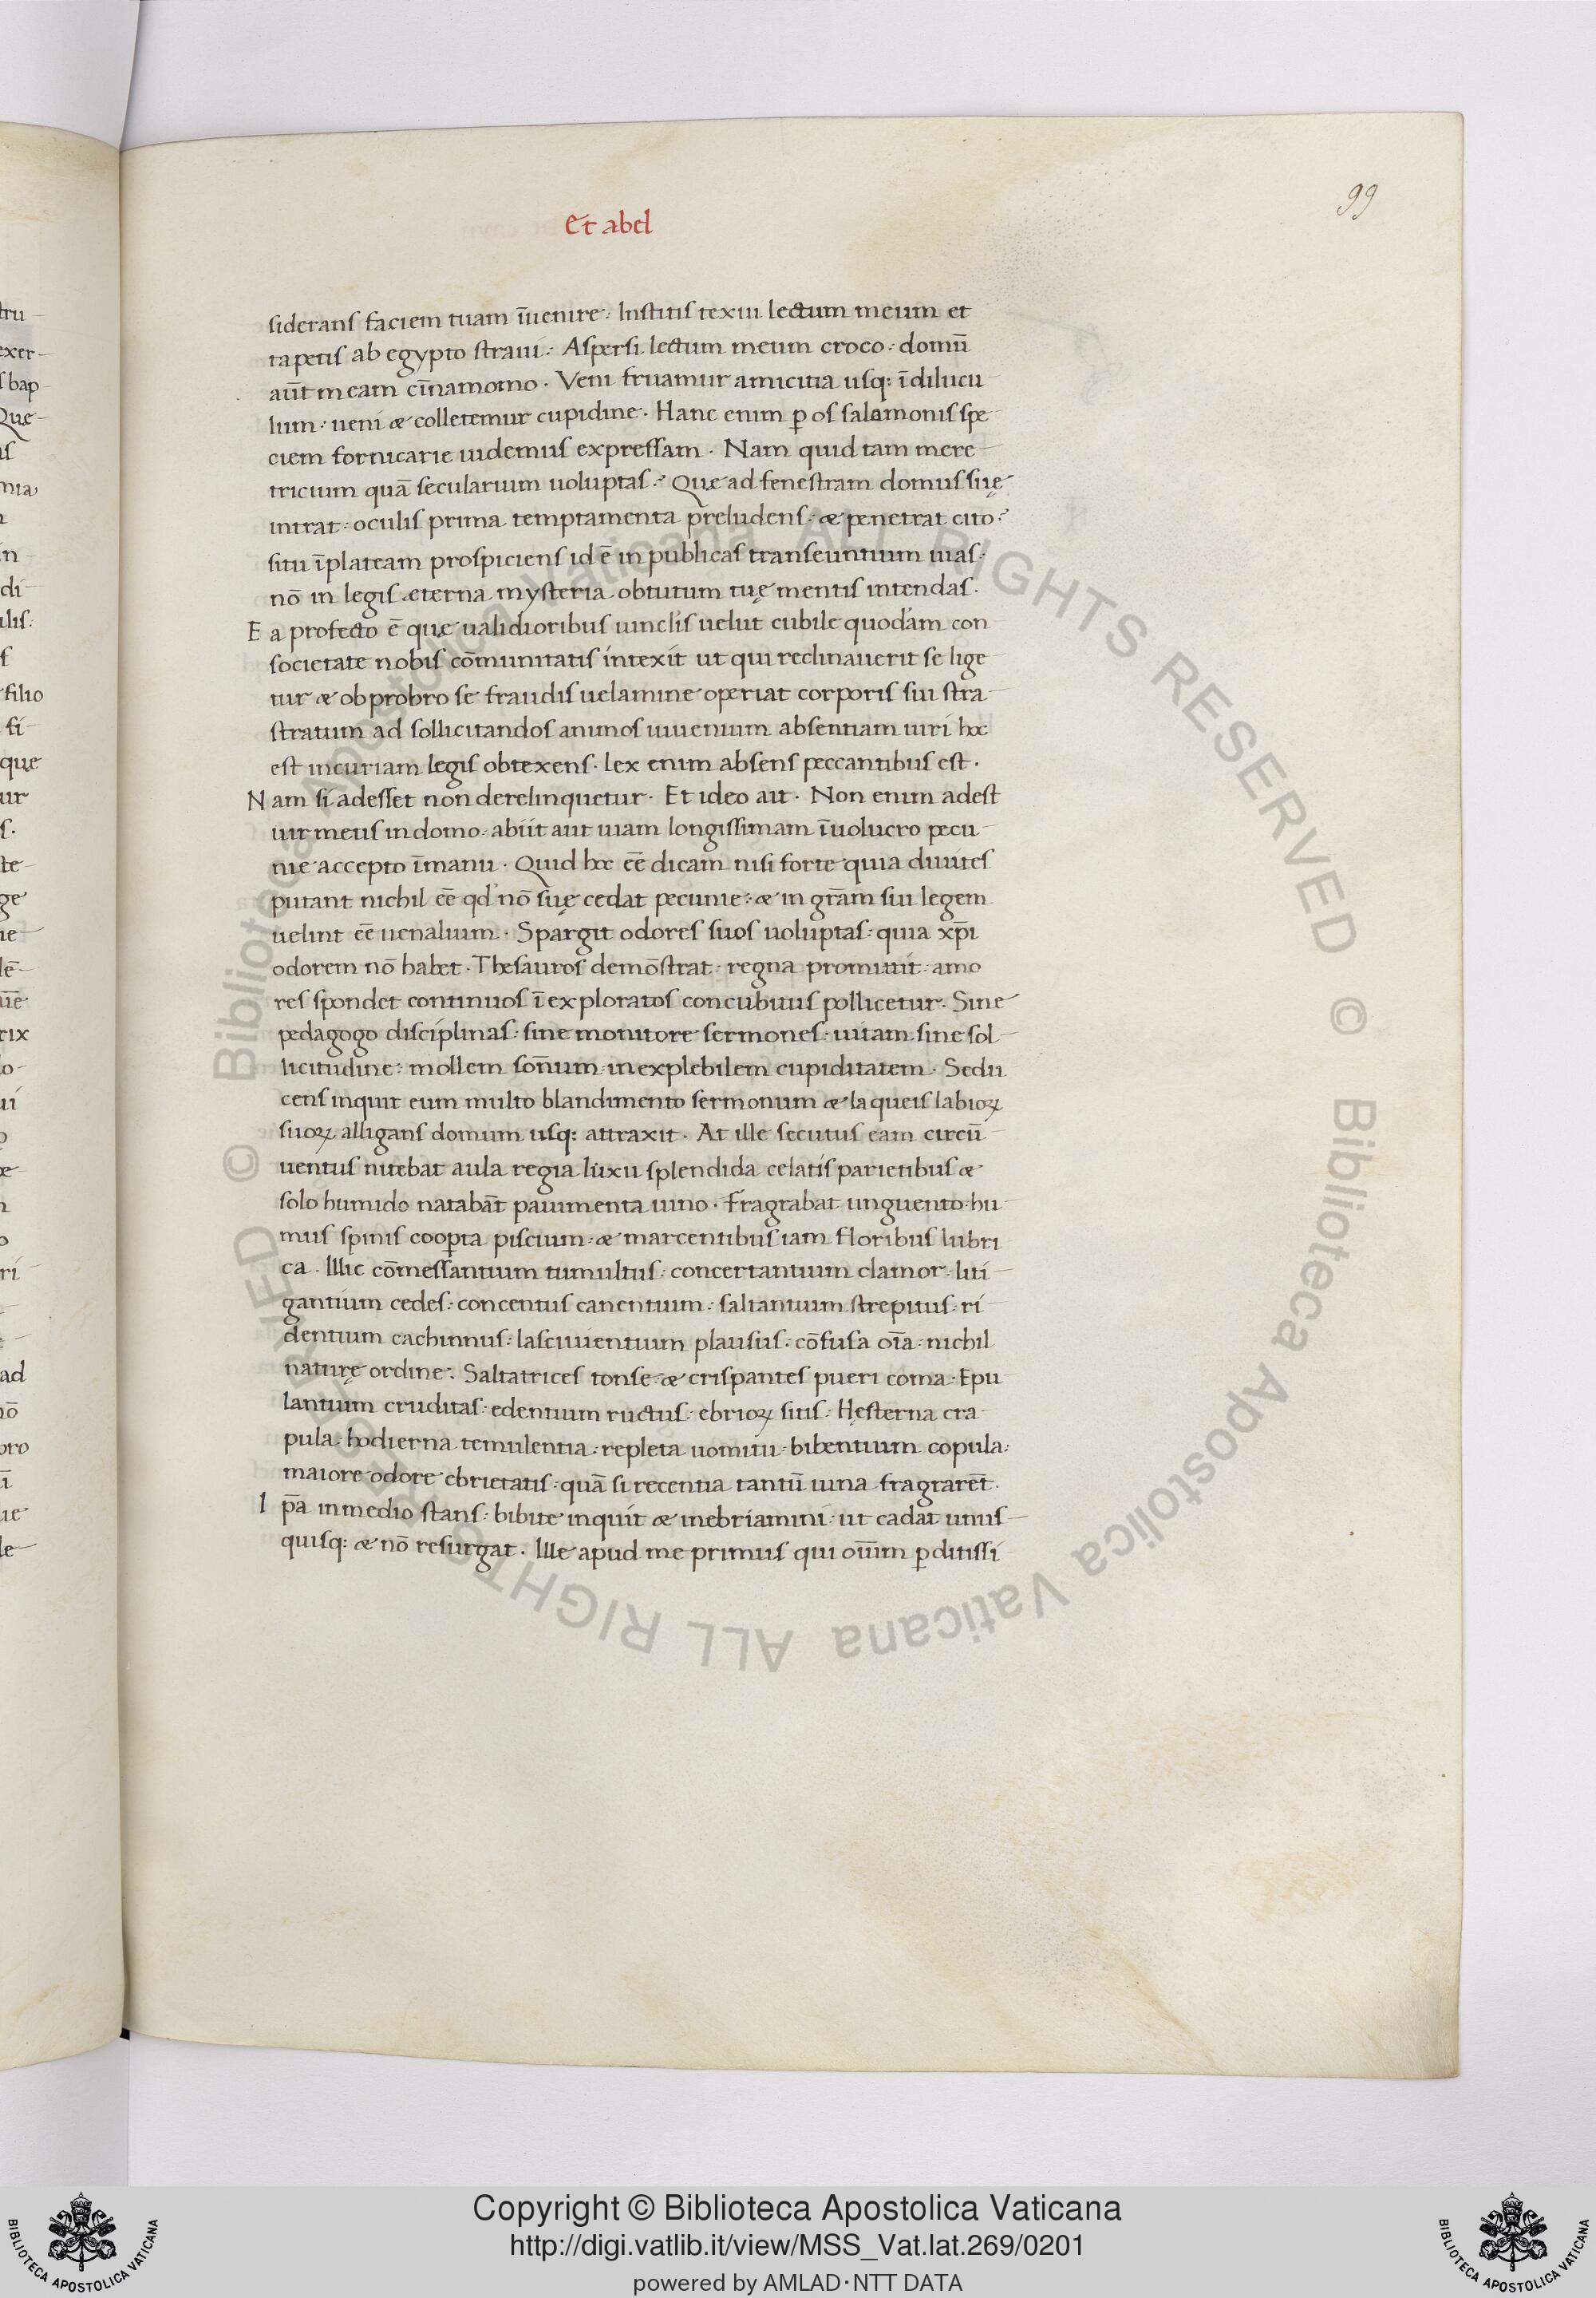 99
Et abel
siderans faciem tuam īuenire: Institis texui lectum meum et
tapetis ab egypto straui: Aspersi lectum meum croco: domū
aūt meam cīnamomo. Veni fruamur amicitia usq: ī dilucu
lum: ueni æ colletemur cupidine. Hanc enim ꝑ os salamonis spe
ciem fornicarie uidemus expressam. Nam quid tam mere
tricium quā secularium uoluptas: Que ad fenestram domus suę
intrat: oculis prima temptamenta preludens: æ penetrat cito:
situ ī plateam prospiciens id ē in publicas transeuntium uias:
nō in legis æterna mysteria obtutum tuę mentis intendas.
Ea profecto ē que ualidioribus uinclis uelut cubile quodam con
societate nobis cōmunitatis intexit ut qui reclinauerit se lige
tur æ obprobro se fraudis uelamine operiat corporis sui stra
stratum ad sollicitandos animos iuuenium absentiam uiri hoc
est incuriam legis obtexens. lex enim absens peccantibus est.
Nam si adesset non derelinquetur. Et ideo ait. Non enim adest
uir meus in domo: abiit aut uiam longissimam īuolucro pecu
nie accepto ī manu. Quid hoc eē dicam nisi forte quia diuites
putant nichil eē qd nō suę cedat pecunie: æ in grām sui legem
uelint eē uenalium. Spargit odores suos uoluptas: quia xp̄i
odorem nō habet. Thesauros demōstrat: regna promittit: amo
res spondet continuos īexploratos concubitus pollicetur. Sine
pedagogo disciplinas: sine monitore sermones: uitam sine sol
licitudine: mollem sōnum: inexplebilem cupiditatem. Sedu
cens inquit eum multo blandimento sermonum æ laqueis labioꝝ
suoꝝ alligans domum usq: attraxit. At ille secutus eam circū
uentus nitebat aula regia luxu splendida celatis parietibus æ
solo humido natabāt pauimenta uino. Fragrabat unguento: hu
mus spinis cooꝑta piscium: æ marcentibus iam floribus lubri
ca. Illic cōmessantium tumultus: concertantium clamor: liti
gantium cedes: concentus canentium: saltantium strepitus: ri
dentium cachinnus: lasciuientium plausus: cōfusa oīa: nichil
naturę ordine. Saltatrices tonse: æ crispantes pueri coma: Epu
lantium cruditas: edentium ructus: ebrioꝝ sitis: Hęsterna cra
pula: hodierna temulentia: repleta uomitu: bibentium copula:
maiore odore ebrietatis: quā si recentia tantū uina fragrarēt.
Ip̄a in medio stans: bibite inquit æ inebriamini: ut cadat unus
quisq: æ nō resurgat. Ille apud me primus qui oīum ꝑditissi
tru
exer
bap
Que
mia
in
di
filio
fi
que
ur
te
ge
rix
ri
ad
nō
pro
le
© Biblioteca Apostolica Vaticana ALL RIGHTS RESERVED © Biblioteca Apostolica Vaticana ALL RIGHTS RESERVED
Copyright © Biblioteca Apostolica Vaticana
http://digi.vatlib.it/view/MSS_Vat.lat.269/0201
powered by AMLAD·NTT DATA
BIBLIOTECA APOSTOLICA VATICANA
BIBLIOTECA APOSTOLICA VATICANA